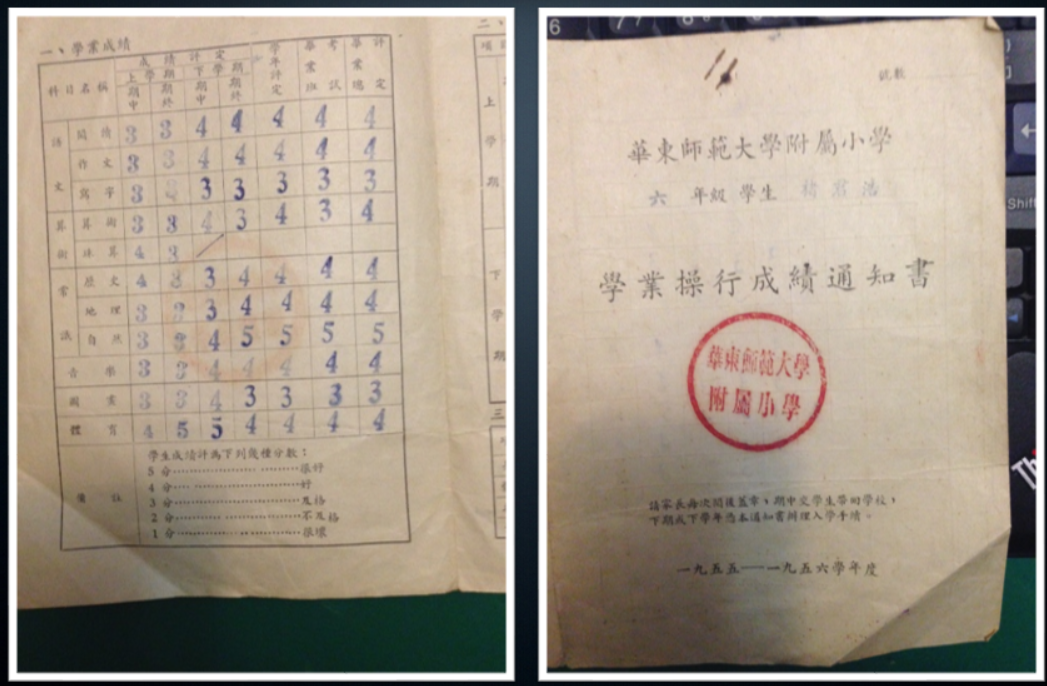 一、學業成績
科目名稱 成績評定 學年評定 畢業考試 畢業總評定
上學期 下學期
期中 期終 期中 期終
語文 閱讀 3 3 4 4 4 4 4
作文 3 3 4 4 4 4 4
寫字 3 3 3 3 3 3
算術 算術 3 3 4 3 4 3 4
珠算 4 3
常識 歷史 4 3 3 4 4 4 4
地理 3 3 3 4 4 4 4
自然 3 3 4 5 5 5 5
音樂 3 3 4 4 4 4 4
圖畫 3 3 4 3 3 3 3
體育 4 5 5 4 4 4 4
備註
學生成績評為下列幾種分數：
5分……………………很好
4分……………………好
3分……………………及格
2分……………………不及格
1分……………………很壞
二、
項
上學期
下學期
三
號數
華東師範大學附屬小學
六 年級 學生 褚君浩
學業操行成績通知書
華東師範大學
附屬小學
請家長每次閱後蓋章，期中交學生帶回學校，
下期或下學年憑本通知書辦理入學手續。
一九五五——一九五六學年度
6
7
8
Shift
Th